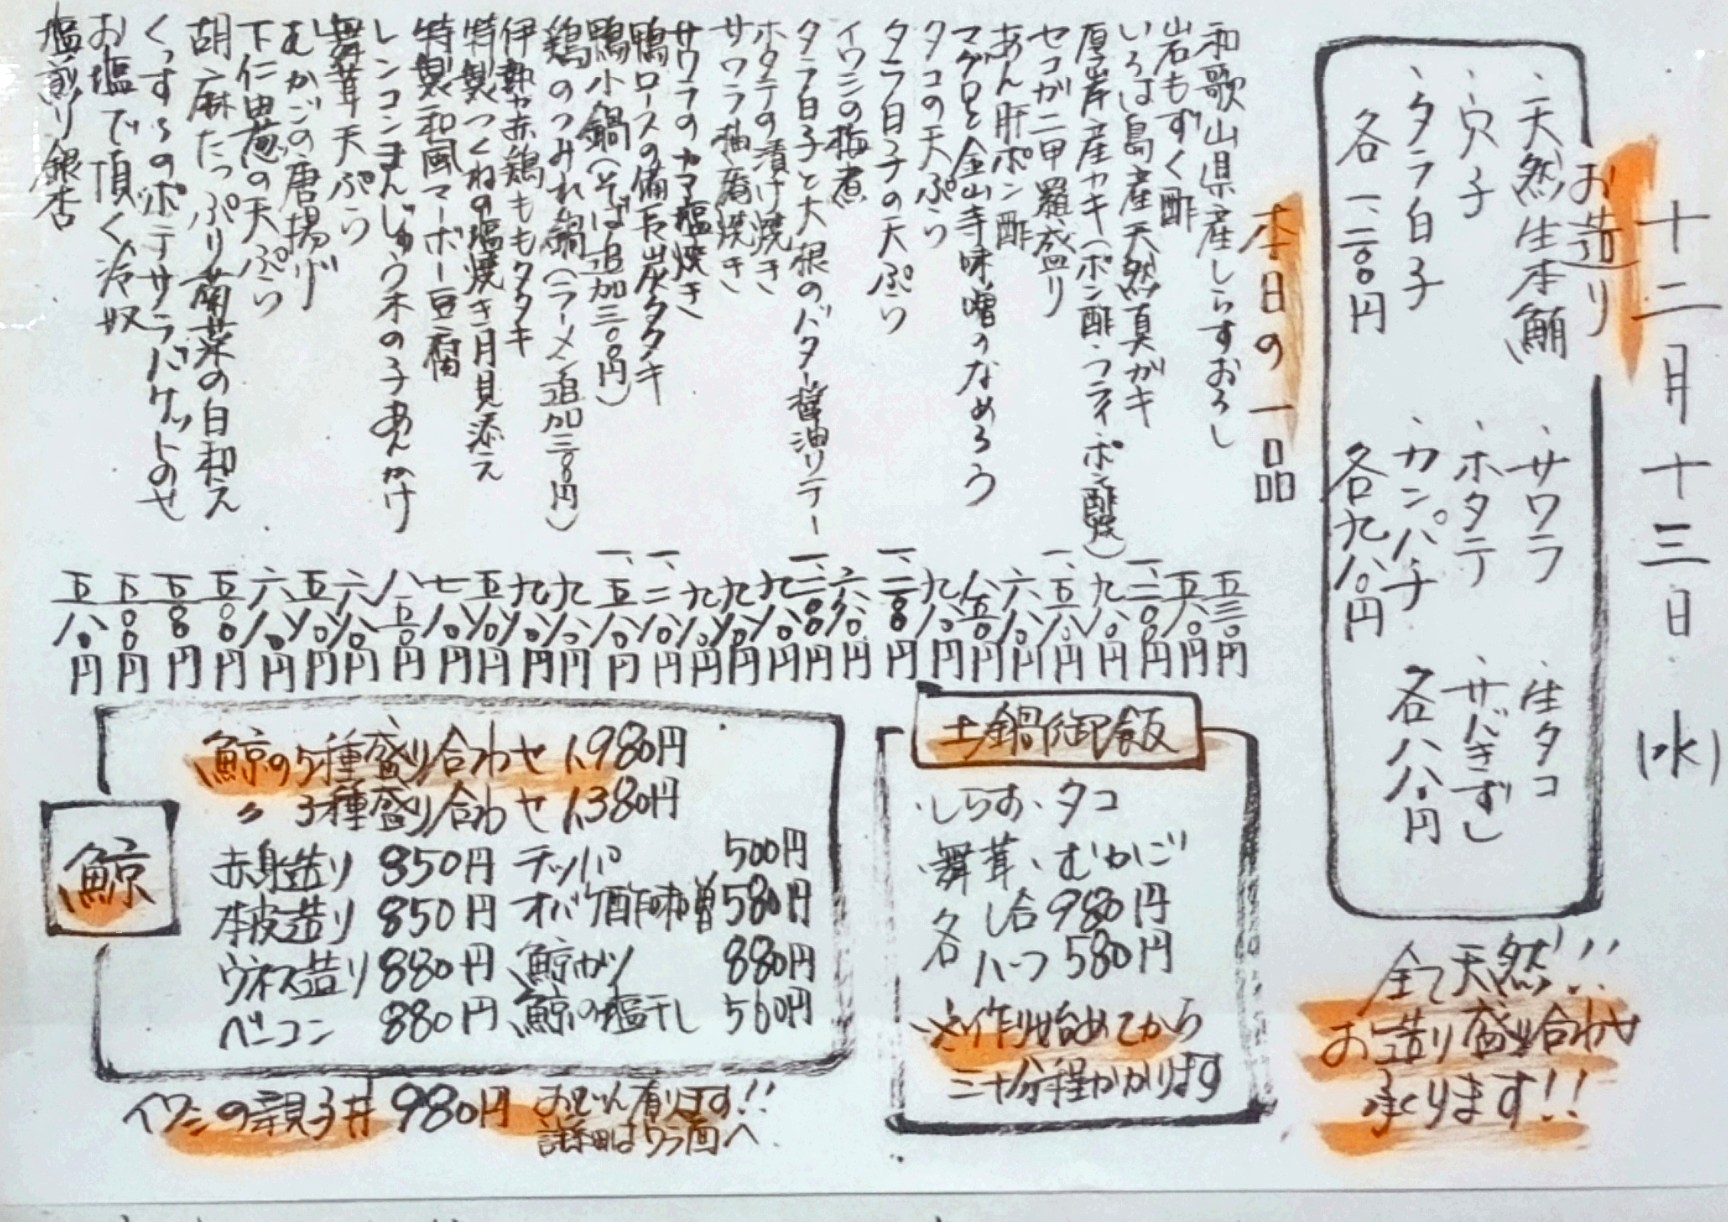 十二月十三日(水)
お造り
・天然生本鮪
・サワラ
・生タコ
・穴子
・ホタテ
・サバきずし
・タラ白子
・カンパチ
各八八〇円
各一、二〇〇円
各九八〇円
全て天然!!
お造り盛り合わせ
承ります!!
本日の一品
和歌山県産しらすおろし 五三〇円
岩もずく酢 五八〇円
いろは島産天然真ガキ 一、二〇〇円
厚岸産カキ(ポン酢・フライ・ポン酢焼) 九八〇円
セコガニ甲羅盛り 一、五八〇円
あん肝ポン酢 六八〇円
マグロと金山寺味噌のなめろう 八五〇円
タコの天ぷら 九八〇円
タラ白子の天ぷら 一、二〇〇円
イワシの梅煮 六八〇円
タラ白子と大根のバター醤油ソテー 一、二〇〇円
ホタテの漬け焼き 九八〇円
サワラ柚庵焼き 九八〇円
サワラのカマ塩焼き 九八〇円
鴨ロースの備長炭タタキ 一、二八〇円
鴨小鍋(そば追加三〇〇円) 一、五八〇円
鶏のつみれ鍋(ラーメン追加三〇〇円) 九八〇円
伊勢赤鶏ももタタキ 九八〇円
特製つくねの塩焼き月見添え 五八〇円
特製和風マーボー豆腐 七八〇円
レンコンまんじゅう木の子あんかけ 八五〇円
舞茸天ぷら 六八〇円
むかごの唐揚げ 五八〇円
下仁田葱の天ぷら 六八〇円
胡麻たっぷり菊菜の白和え 五五〇円
くっするのポテサラバゲットのせ 五五〇円
お塩で頂く冷奴 五五〇円
塩煎り銀杏 五八〇円
土鍋御飯
・しらす・タコ
・舞茸・むかご
各 一合 980円
各 ハーフ 580円
※作り始めてから
三十分程かかります
鯨
鯨の5種盛り合わせ 1,980円
〃 3種盛り合わせ 1,380円
赤身造り 850円 テッパ 500円
本皮造り 850円 オバケ酢味噌 580円
ウネス造り 880円 鯨カツ 880円
ベーコン 880円 鯨の塩干し 560円
イワシの親子丼 980円
おでん有ります!!
詳細はウラ面へ